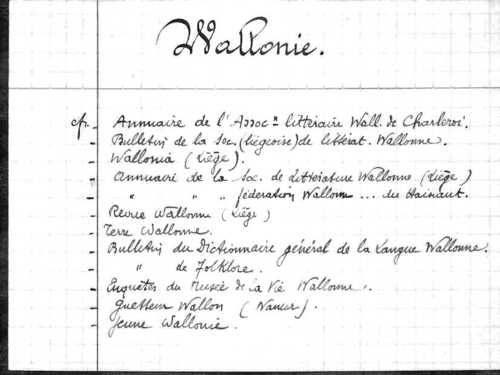 Wallonie.
cfr. - Annuaire de l'Assocⁿ littéraire Wall. de Charleroi.
- Bulletin de la Soc. (liégeoise) de littérat. Wallonne.
- Wallonia (Liège).
- Annuaire de la Soc. de Littérature Wallonne (Liège)
- " " " fédération Wallonne ... du Hainaut.
- Revue Wallonne (Liège)
- Terre Wallonne.
- Bulletin du Dictionnaire général de la Langue Wallonne.
- " de Folklore.
- Enquêtes du Musée de la Vie Wallonne.
- Guetteur Wallon (Namur).
- Jeune Wallonie.